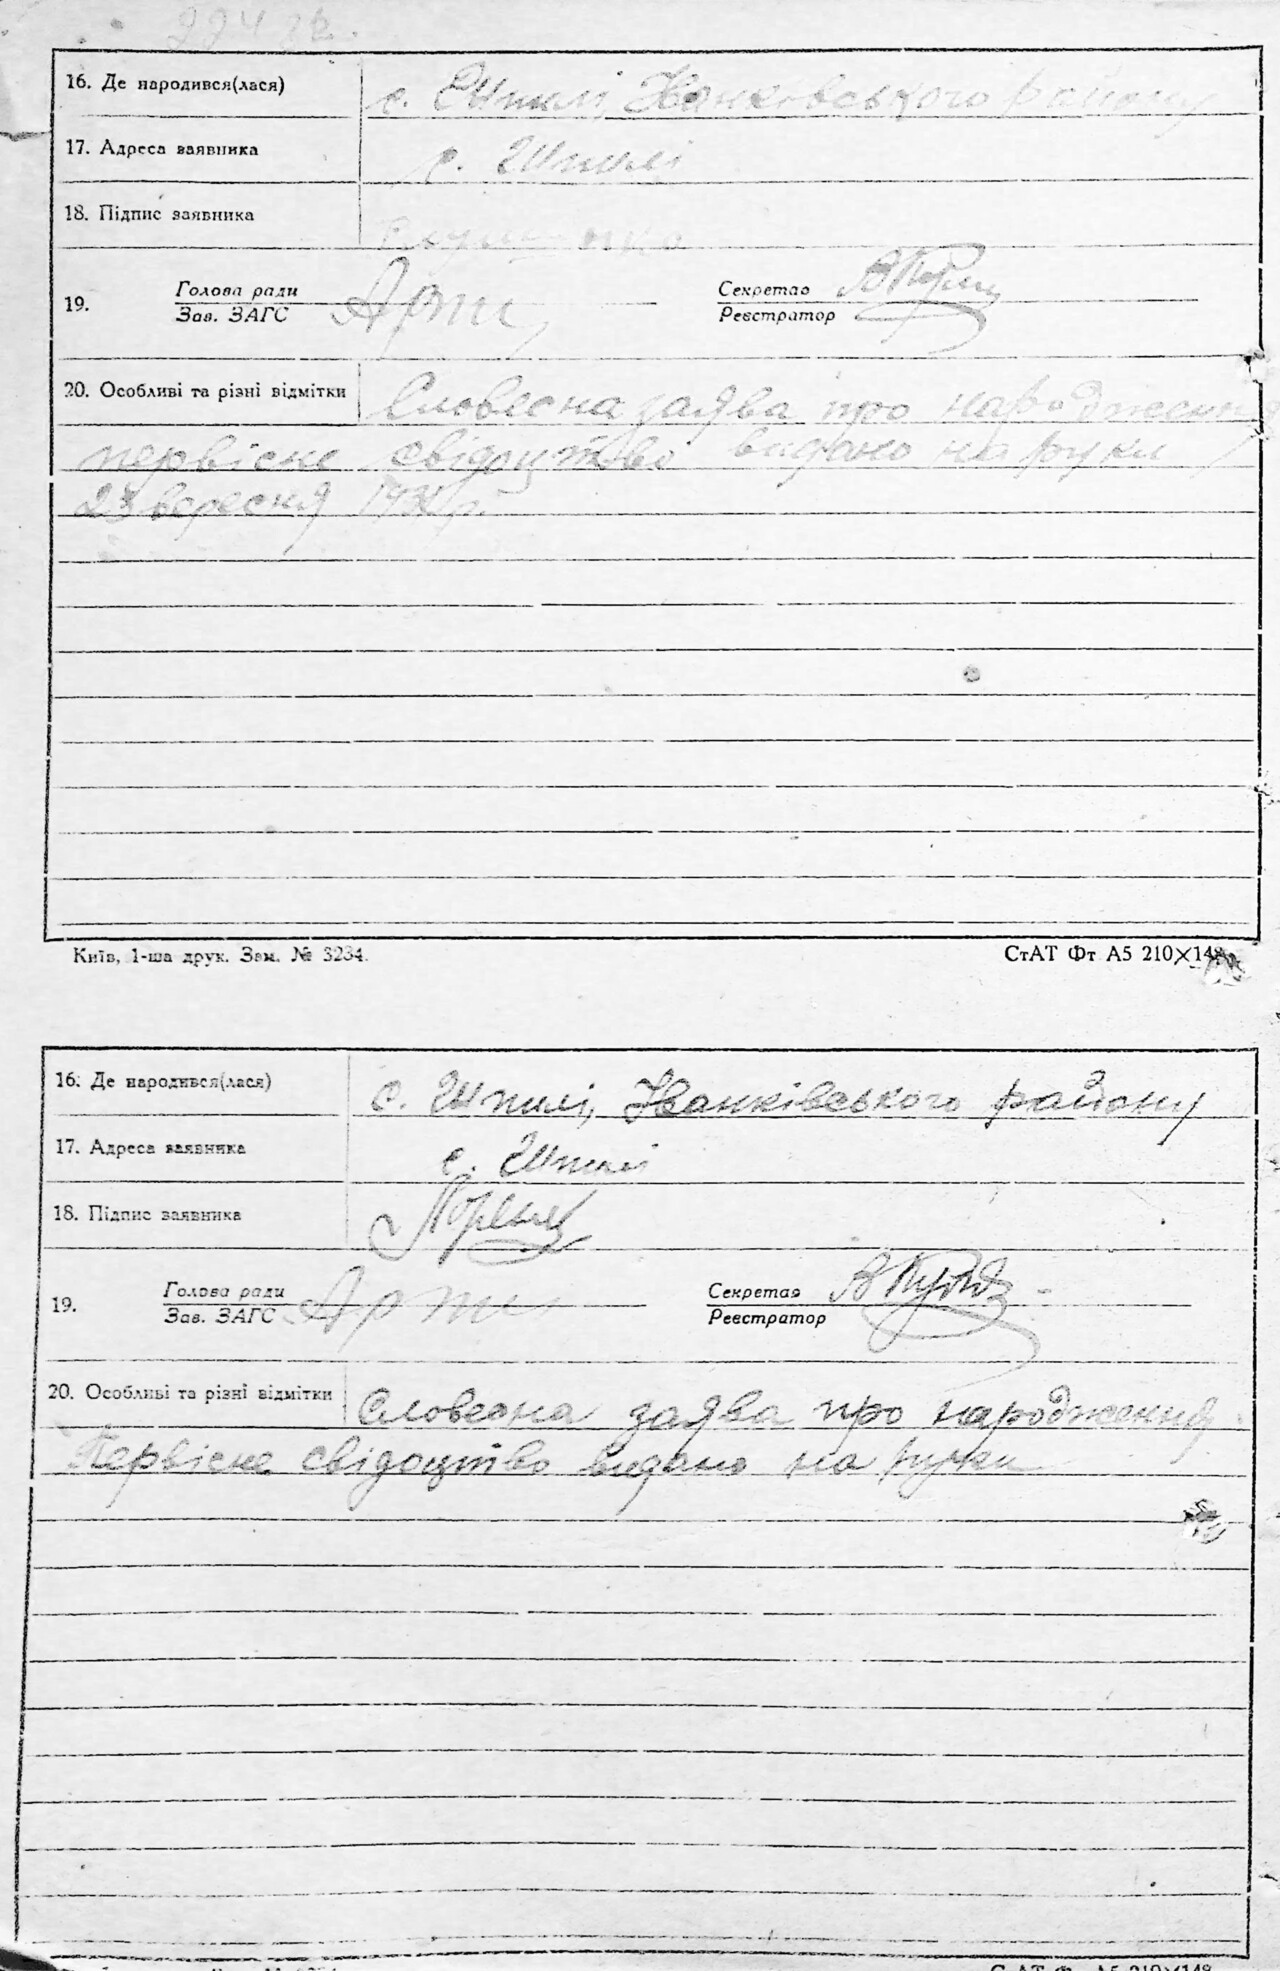 16. Де народився(лася) с. Шпилі, Іванківського району
17. Адреса заявника с. Шпилі
18. Підпис заявника
19. Голова ради Секретар
Зав. ЗАГС Реєстратор
20. Особливі та різні відмітки Словесна заява про народження
первісне свідоцтво видано на руки
23 вересня
Київ, 1-ша друк. Зам. № 3234. СтАТ Фт А5 210×148
16. Де народився(лася) с. Шпилі, Іванківського району
17. Адреса заявника с. Шпилі
18. Підпис заявника
19. Голова ради Секретар
Зав. ЗАГС Реєстратор
20. Особливі та різні відмітки Словесна заява про народження
Первісне свідоцтво видано на руки